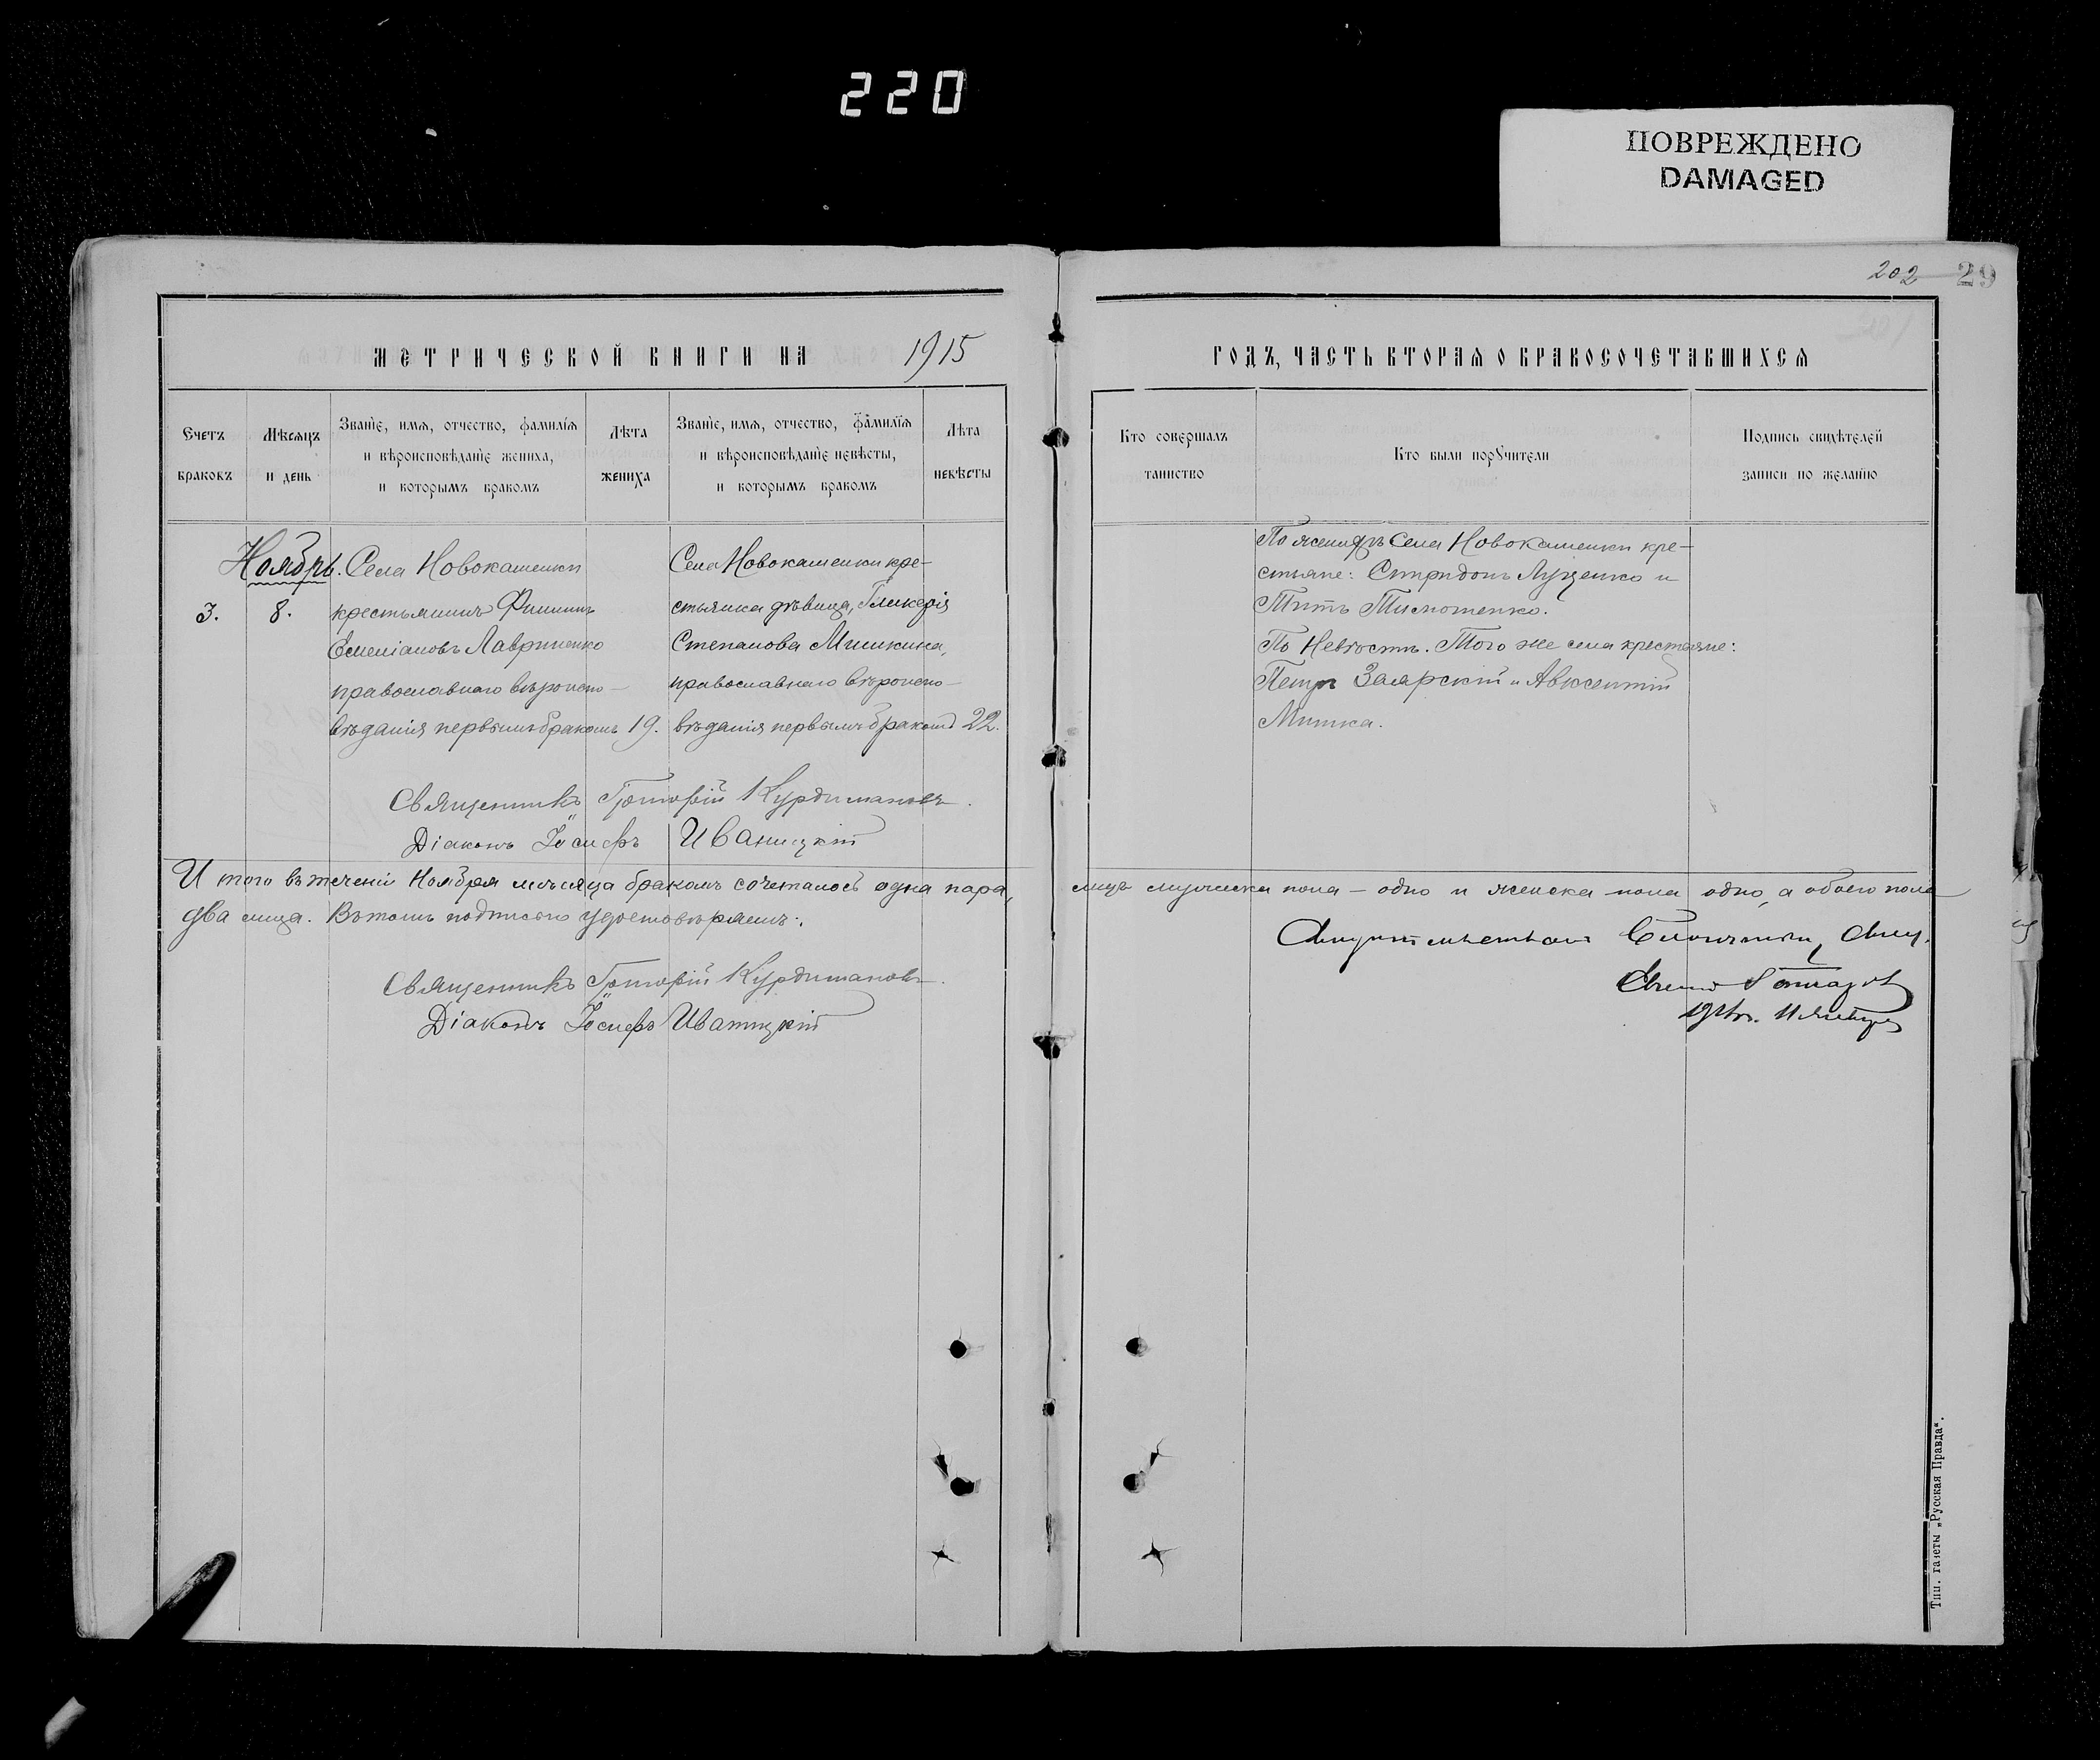 220
ПОВРЕЖДЕНО
DAMAGED
202 29
МЕТРИЧЕСКОЙ КНИГИ НА 1915
ГОДЪ, ЧАСТЬ ВТОРАЯ О БРАКОСОЧЕТАВШИХСЯ
Счетъ
браковъ
Мѣсяцъ
и день
Званіе, имя, отчество, фамилія
и вѣроисповѣданіе жениха,
и которымъ бракомъ
Лѣта
жениха
Званіе, имя, отчество, фамилія
и вѣроисповѣданіе невѣсты,
и которымъ бракомъ
Лѣта
невѣсты
Кто совершалъ
таинство
Кто были поручители
Подпись свидѣтелей
записи по желанію
Ноябрь.
3.
8.
Села Новокашенки
крестьянинъ Филиппъ
Емеліановъ Лавриненко
православнаго вѣроиспо-
вѣданія первымъ бракомъ 19.
Села Новокашенки кре-
стьянка дѣвица, Гликерія
Степанова Мишкина,
православнаго вѣроиспо-
вѣданія первымъ бракомъ 22.
По женихѣ Села Новокашенки кре-
стьяне: Спиридонъ Луценко и
Титъ Тимошенко.
По Невѣстѣ. Того же села крестьяне:
Петръ Заярскій и Авксентій
Мишка.
Священникъ Григорій Курдимановъ.
Діаконъ Іосифъ Иваницкій
И того въ теченіи Ноября мѣсяца бракомъ сочеталось одна пара,
лицъ мужеска пола – одно и женска пола одно, а обоего пола
два лица. Въ томъ подписью удостовѣряемъ:
Священникъ Григорій Курдимановъ.
Діаконъ Іосифъ Иваницкій
Тип. газеты „Русская Правда“.